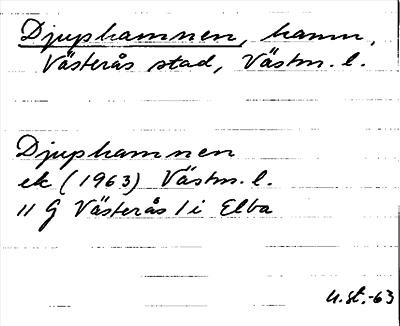 Djuphamnen, hamn,
Västerås stad, Västm. l.
Djuphamnen
ek (1963) Västm. l.
11 G Västerås 1 i Elba
U.st.-63